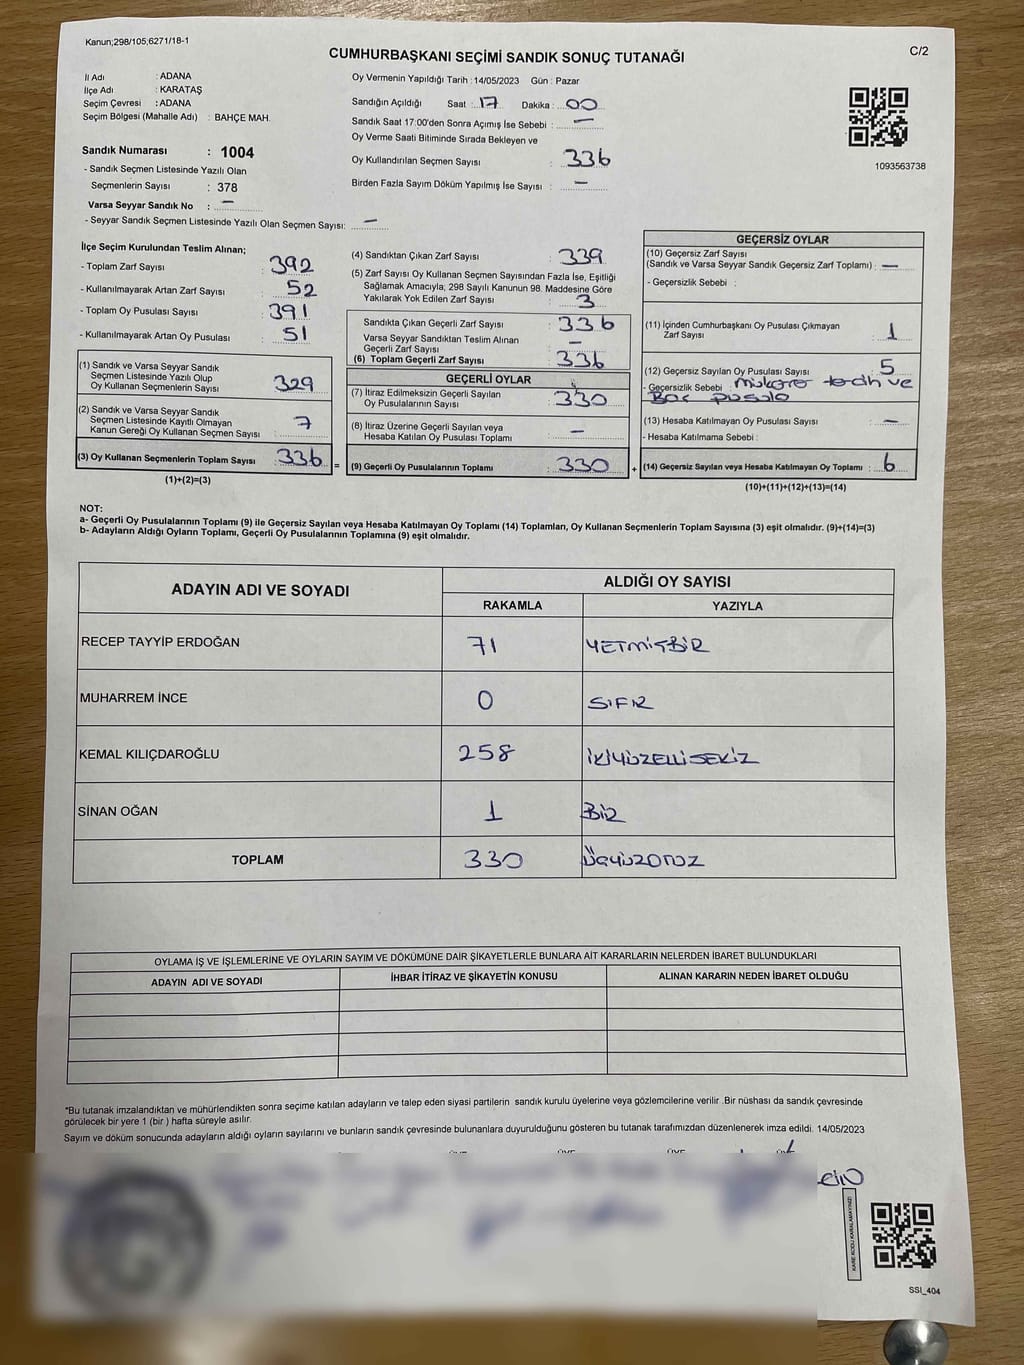 Kanun;298/105,6271/18-1
C/2
CUMHURBAŞKANI SEÇİMİ SANDIK SONUÇ TUTANAĞI
İl Adı : ADANA
İlçe Adı : KARATAŞ
Seçim Çevresi : ADANA
Seçim Bölgesi (Mahalle Adı) : BAHÇE MAH.
Sandık Numarası : 1004
- Sandık Seçmen Listesinde Yazılı Olan
Seçmenlerin Sayısı : 378
Varsa Seyyar Sandık No : –
- Seyyar Sandık Seçmen Listesinde Yazılı Olan Seçmen Sayısı: –
Oy Vermenin Yapıldığı Tarih : 14/05/2023 Gün : Pazar
Sandığın Açıldığı Saat : 17 Dakika : 00
Sandık Saat 17:00'den Sonra Açımış İse Sebebi : –
Oy Verme Saati Bitiminde Sırada Bekleyen ve
Oy Kullandırılan Seçmen Sayısı : 336
Birden Fazla Sayım Döküm Yapılmış İse Sayısı : –
1093563738
İlçe Seçim Kurulundan Teslim Alınan;
- Toplam Zarf Sayısı : 392
- Kullanılmayarak Artan Zarf Sayısı : 52
- Toplam Oy Pusulası Sayısı : 391
- Kullanılmayarak Artan Oy Pusulası : 51
(1) Sandık ve Varsa Seyyar Sandık
Seçmen Listesinde Yazılı Olup
Oy Kullanan Seçmenlerin Sayısı : 329
(2) Sandık ve Varsa Seyyar Sandık
Seçmen Listesinde Kayıtlı Olmayan
Kanun Gereği Oy Kullanan Seçmen Sayısı : 7
(3) Oy Kullanan Seçmenlerin Toplam Sayısı : 336
(1)+(2)=(3)
(4) Sandıktan Çıkan Zarf Sayısı : 339
(5) Zarf Sayısı Oy Kullanan Seçmen Sayısından Fazla İse, Eşitliği
Sağlamak Amacıyla; 298 Sayılı Kanunun 98. Maddesine Göre
Yakılarak Yok Edilen Zarf Sayısı : 3
Sandıkta Çıkan Geçerli Zarf Sayısı : 336
Varsa Seyyar Sandıktan Teslim Alınan
Geçerli Zarf Sayısı : –
(6) Toplam Geçerli Zarf Sayısı : 336
GEÇERLİ OYLAR
(7) İtiraz Edilmeksizin Geçerli Sayılan
Oy Pusulalarının Sayısı : 330
(8) İtiraz Üzerine Geçerli Sayılan veya
Hesaba Katılan Oy Pusulası Toplamı : –
= (9) Geçerli Oy Pusulalarının Toplamı : 330
GEÇERSİZ OYLAR
(10) Geçersiz Zarf Sayısı
(Sandık ve Varsa Seyyar Sandık Geçersiz Zarf Toplamı) : –
- Geçersizlik Sebebi :
(11) İçinden Cumhurbaşkanı Oy Pusulası Çıkmayan
Zarf Sayısı : 1
(12) Geçersiz Sayılan Oy Pusulası Sayısı : 5
- Geçersizlik Sebebi : mükerrer tercih ve
Boş pusula
(13) Hesaba Katılmayan Oy Pusulası Sayısı : –
- Hesaba Katılmama Sebebi :
+ (14) Geçersiz Sayılan veya Hesaba Katılmayan Oy Toplamı : 6
(10)+(11)+(12)+(13)=(14)
NOT:
a- Geçerli Oy Pusulalarının Toplamı (9) ile Geçersiz Sayılan veya Hesaba Katılmayan Oy Toplamı (14) Toplamları, Oy Kullanan Seçmenlerin Toplam Sayısına (3) eşit olmalıdır. (9)+(14)=(3)
b- Adayların Aldığı Oyların Toplamı, Geçerli Oy Pusulalarının Toplamına (9) eşit olmalıdır.
ADAYIN ADI VE SOYADI
ALDIĞI OY SAYISI
RAKAMLA YAZIYLA
RECEP TAYYİP ERDOĞAN 71 YETMİŞBİR
MUHARREM İNCE 0 SIFIR
KEMAL KILIÇDAROĞLU 258 İKİYÜZELLİSEKİZ
SİNAN OĞAN 1 BİR
TOPLAM 330 ÜÇYÜZOTUZ
OYLAMA İŞ VE İŞLEMLERİNE VE OYLARIN SAYIM VE DÖKÜMÜNE DAİR ŞİKAYETLERLE BUNLARA AİT KARARLARIN NELERDEN İBARET BULUNDUKLARI
ADAYIN ADI VE SOYADI İHBAR İTİRAZ VE ŞİKAYETİN KONUSU ALINAN KARARIN NEDEN İBARET OLDUĞU
*Bu tutanak imzalandıktan ve mühürlendikten sonra seçime katılan adayların ve talep eden siyasi partilerin sandık kurulu üyelerine veya gözlemcilerine verilir .Bir nüshası da sandık çevresinde
görülecek bir yere 1 (bir ) hafta süreyle asılır.
Sayım ve döküm sonucunda adayların aldığı oyların sayılarını ve bunların sandık çevresinde bulunanlara duyurulduğunu gösteren bu tutanak tarafımızdan düzenlenerek imza edildi. 14/05/2023
KARE KODU KARALAMAYINIZ!
SSI_404